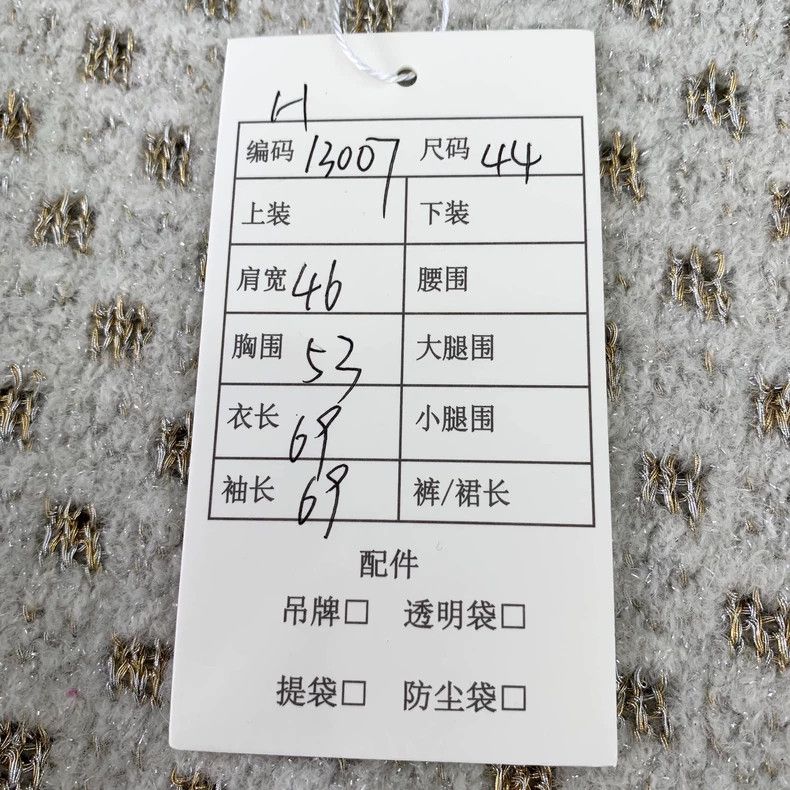 H
编码 13007 尺码 44
上装 下装
肩宽 46 腰围
胸围 53 大腿围
衣长 69 小腿围
袖长 69 裤/裙长
配件
吊牌□ 透明袋□
提袋□ 防尘袋□